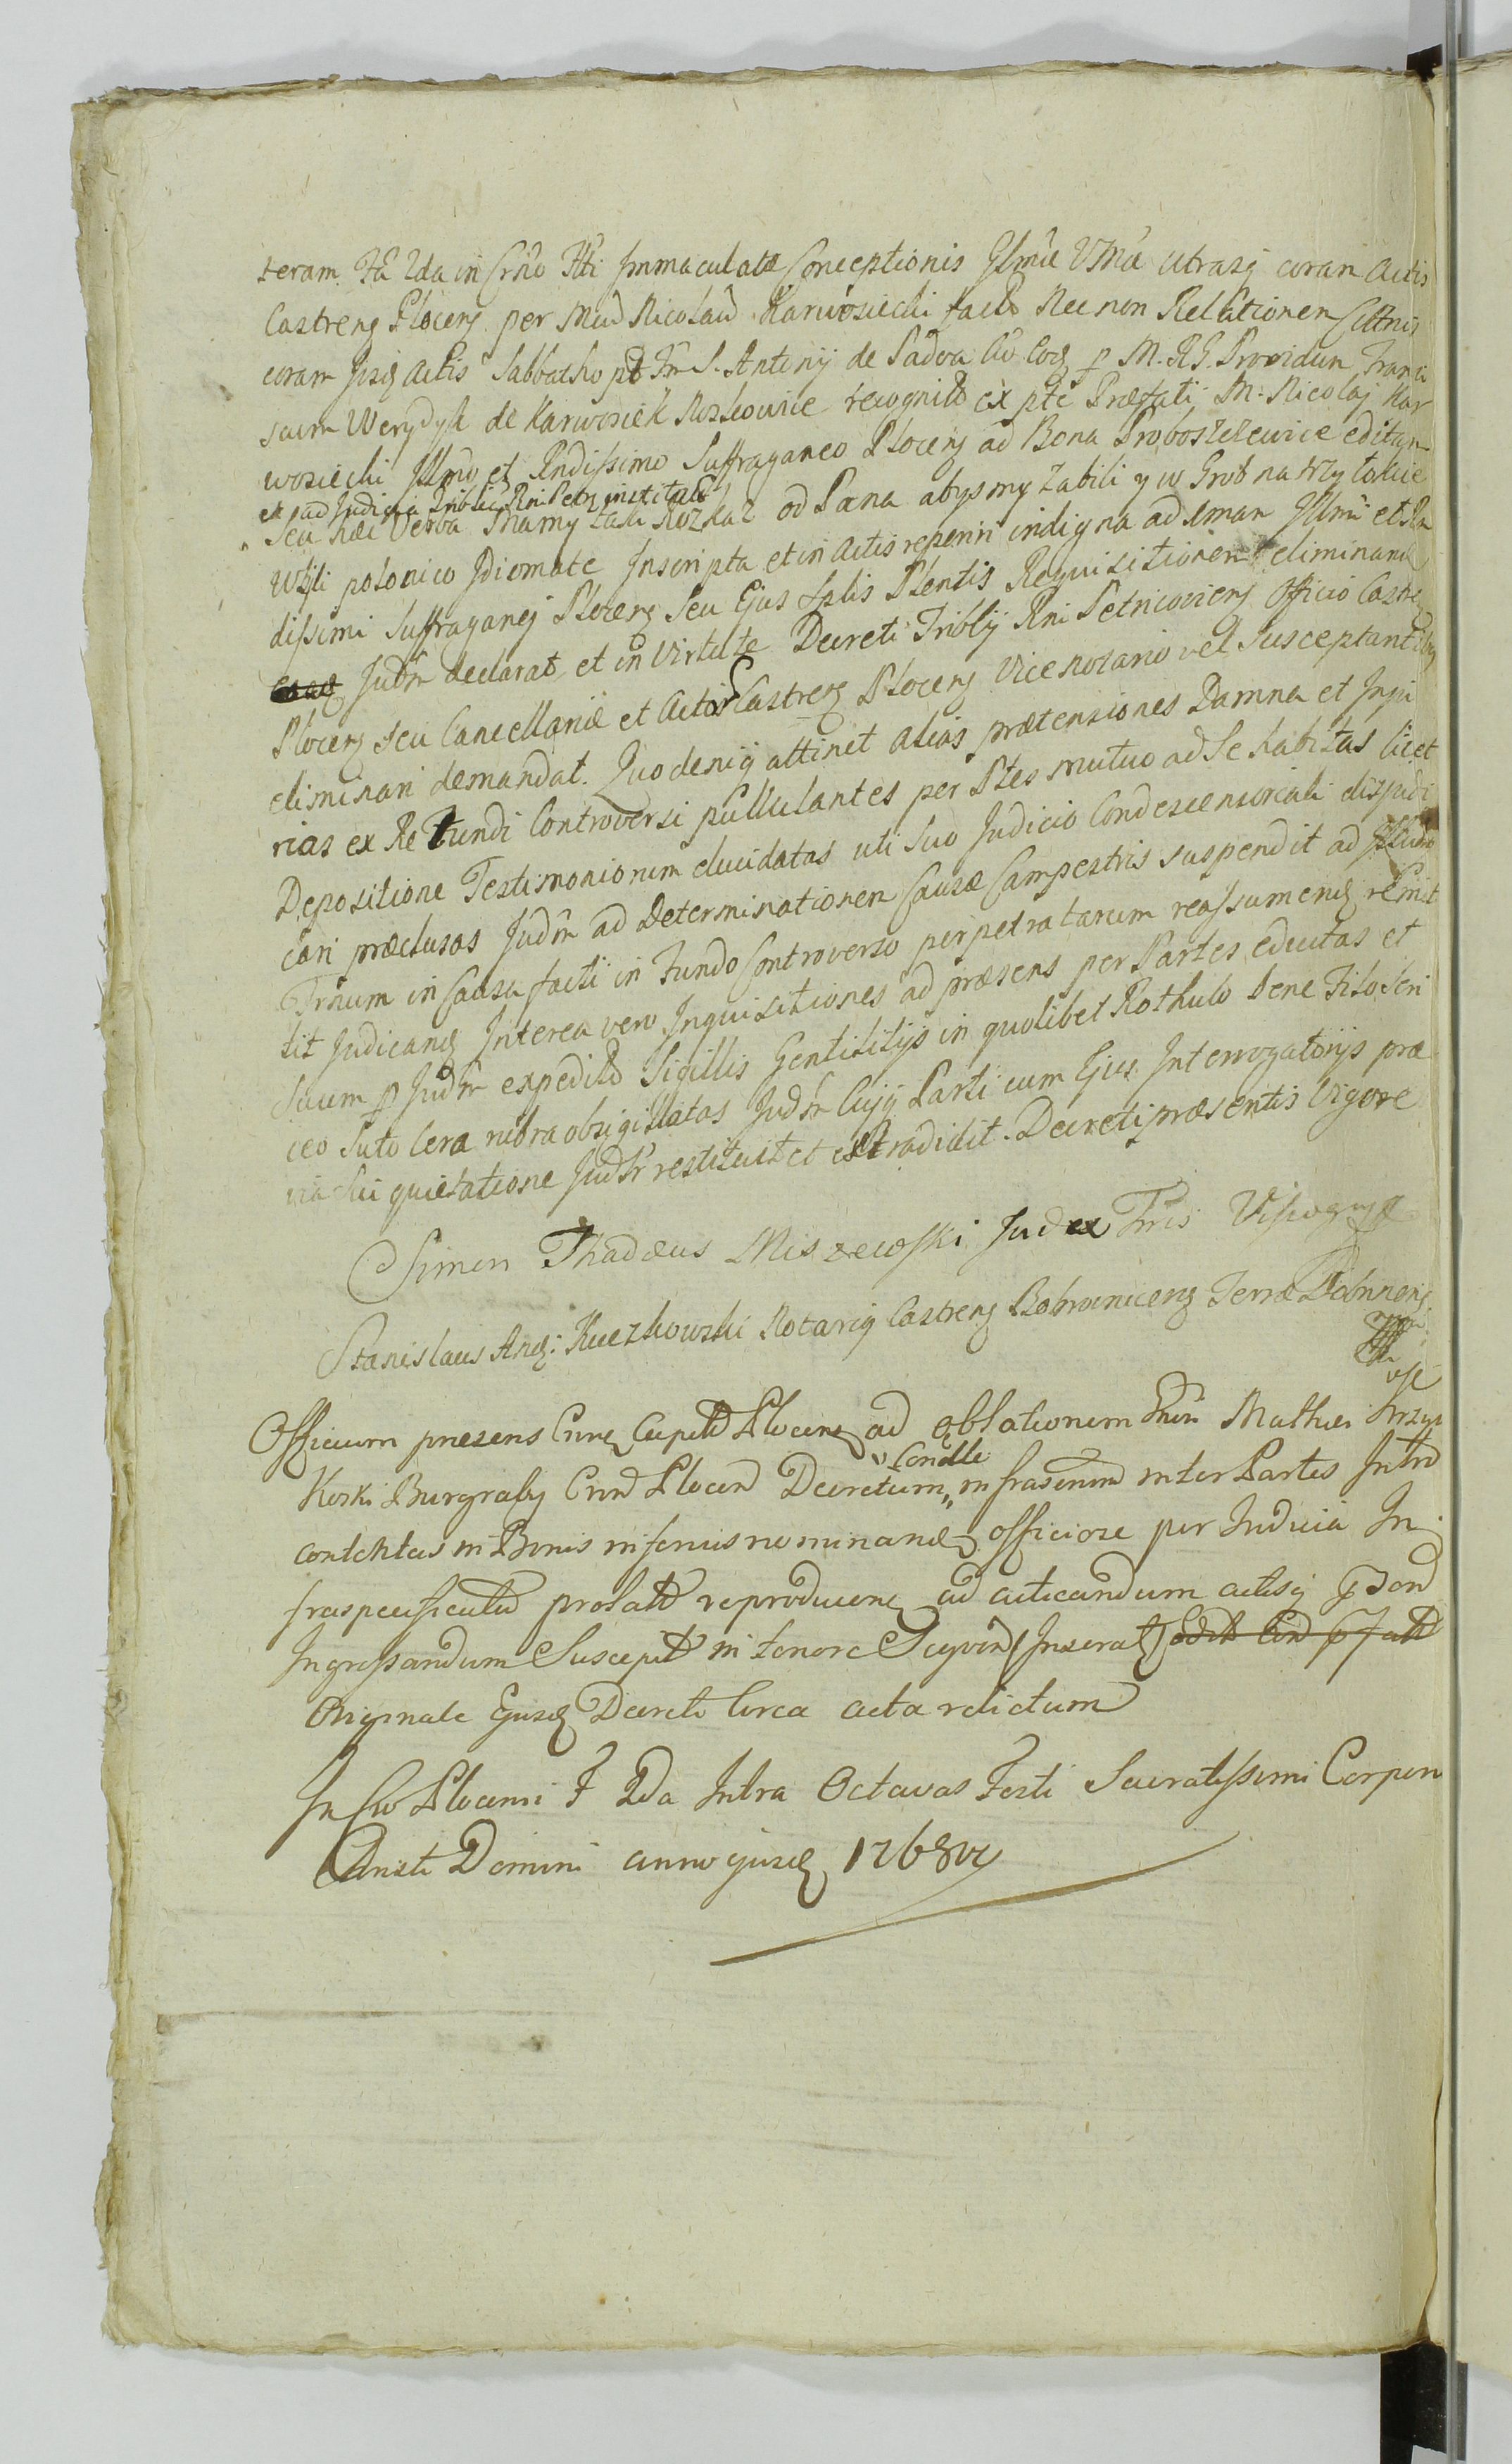 teram. Fa 2da in Crno Fti Immaculatæ Conceptionis Glmæ VMæ utrasq coram Actis
Castrens Plocens per Mud Nicolaū Karwosiecki fact Nec non Relationem Cittnis
coram Iisd Actis Sabbatho pt Fm S. Antonij de Padva Ao Eod p M. RG. Providum Franci
scum Werydyk de Karwosiek Noskowice recognit ex pte Præfati M. Nicolaj Kar
wosiecki Illmo et Rndissimo Suffraganeo Plocens ad Bona Proboszczewice editam
et ad Judicia Triblis Rni Petr institut
Seu hæc Verba Mamy taki Rozkaz od Pana abysmy zabili y w Grob na trzy łokcie
wbili polonico Idiomate Inscripta et in Actis reperiri indigna ad Iman Illmi et Rn
dissimi Suffraganej Plocens Seu Ejus Splis Plentis Requisitionem eliminand
Judm declarat et in Virtute Decreti Triblij Rni Petricoviens Officio Castren
Plocens seu Cancellariæ et Actor Castrens Plocens Vice notario vel Susceptant
eliminari demandat. Quod eniq attinet alias prætensiones Damna et Inju
rias ex Re Fundi Controversi pullulantes per Ptes mutuo ad Se habitas licet
Depositione Testimoniorum elucidatas uti Suo Judicio Condescensoriali dispudi
cari præclusas Judm ad Determinationem Causæ Campestris suspendit ad
Trnum in Causa facti in Fundo Controverso perpetratarum reassumend remit
tit Judicand Interea vero Inquisitiones ad præsens per Partes eductas et
Suum p Judm expedit Sigillis Gentilitijs in quolibet Rothulo bene Filo Seri
ceo Suto Cera rubra obsigillatas Judm Cujq Parti cum Ejus Interrogatorijs præ
via Sui quietatione Judm restituit et extradidit. Decreti præsentis Vigore
Simon Thadæus Miszewski Judex Tris Vissogrg
Stanislaus And: Kuczkowski Notariq Castrens Bobrownicens Terræ Dobrinens
Officium præsens Crne Capit Plocens ad oblationem Mathei Krzy
Condlle
Koski Burgraby Crn Plocen Decretum infrascrium inter Partes Intro
contentas in Bonis inferius nominand officiose per Judicia In
fraspecificatū prolat reproducens ad acticandum actisq
Ingrossandum Suscepit in tenore Sequen Inserat
Originale Ejusd Decreti Circa acta relictum
In Cro Plocensi F 2da Intra Octavas Festi Sacratissimi Corporis
Christi Domini anno ejusd 1768vo